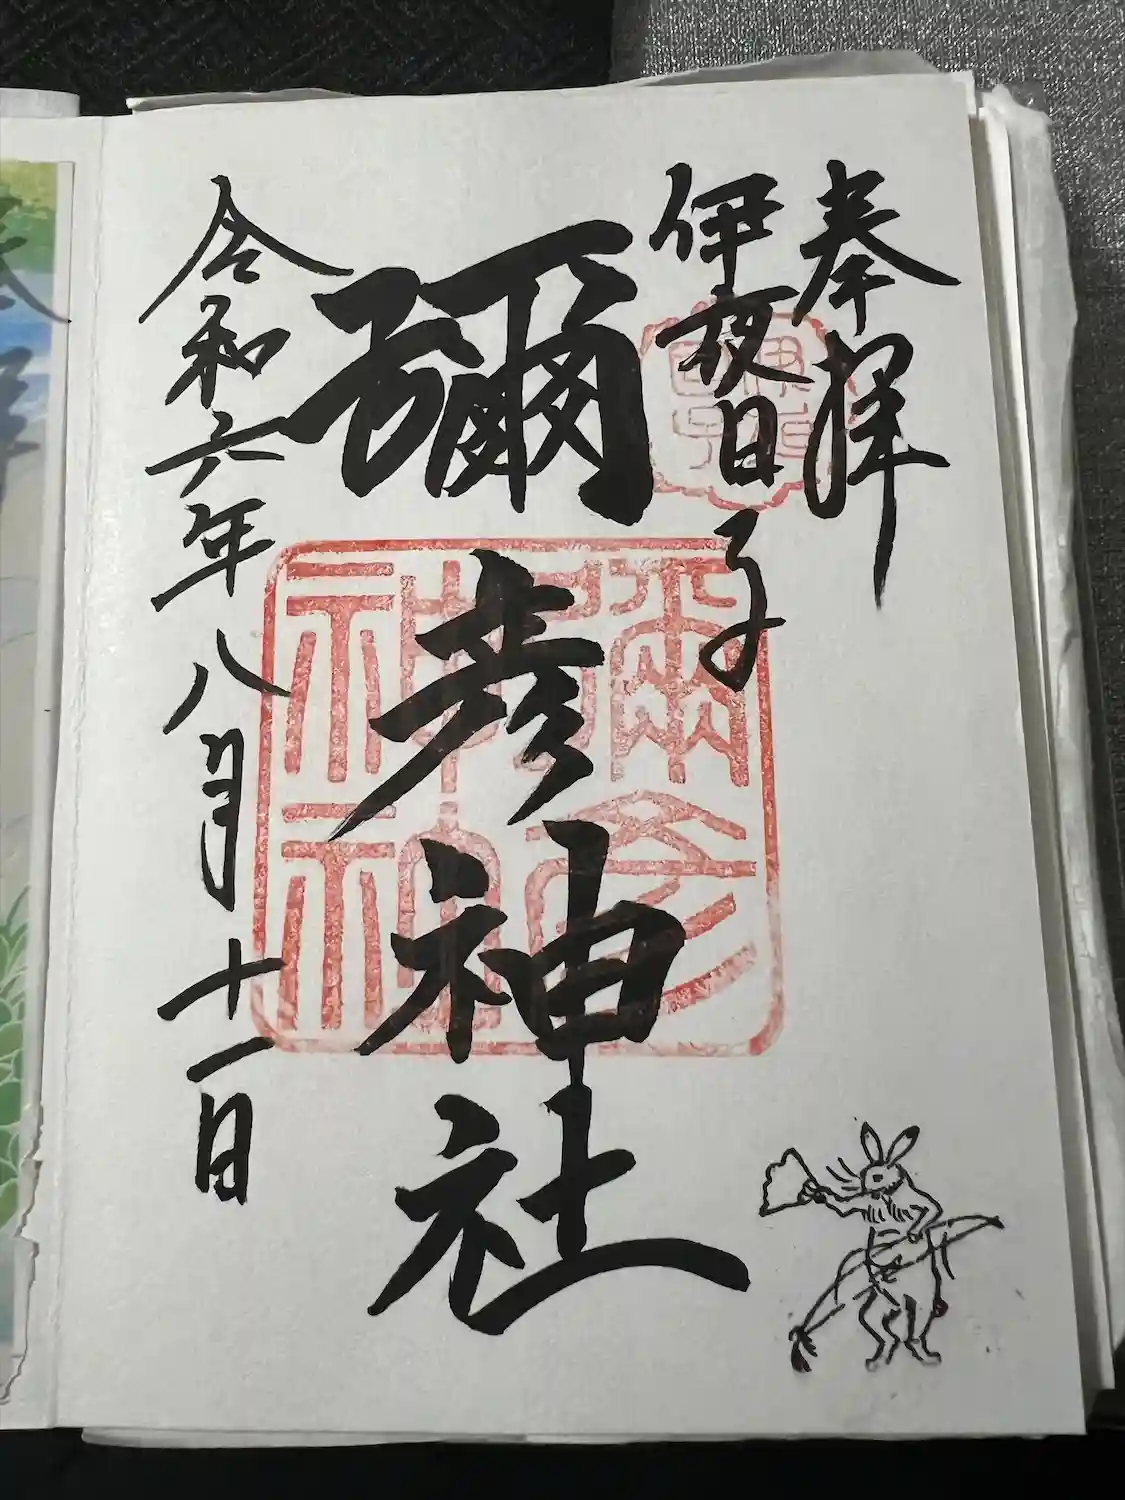 奉拝
伊夜日子
彌彦神社
令和六年八月十一日
彌彦
神社